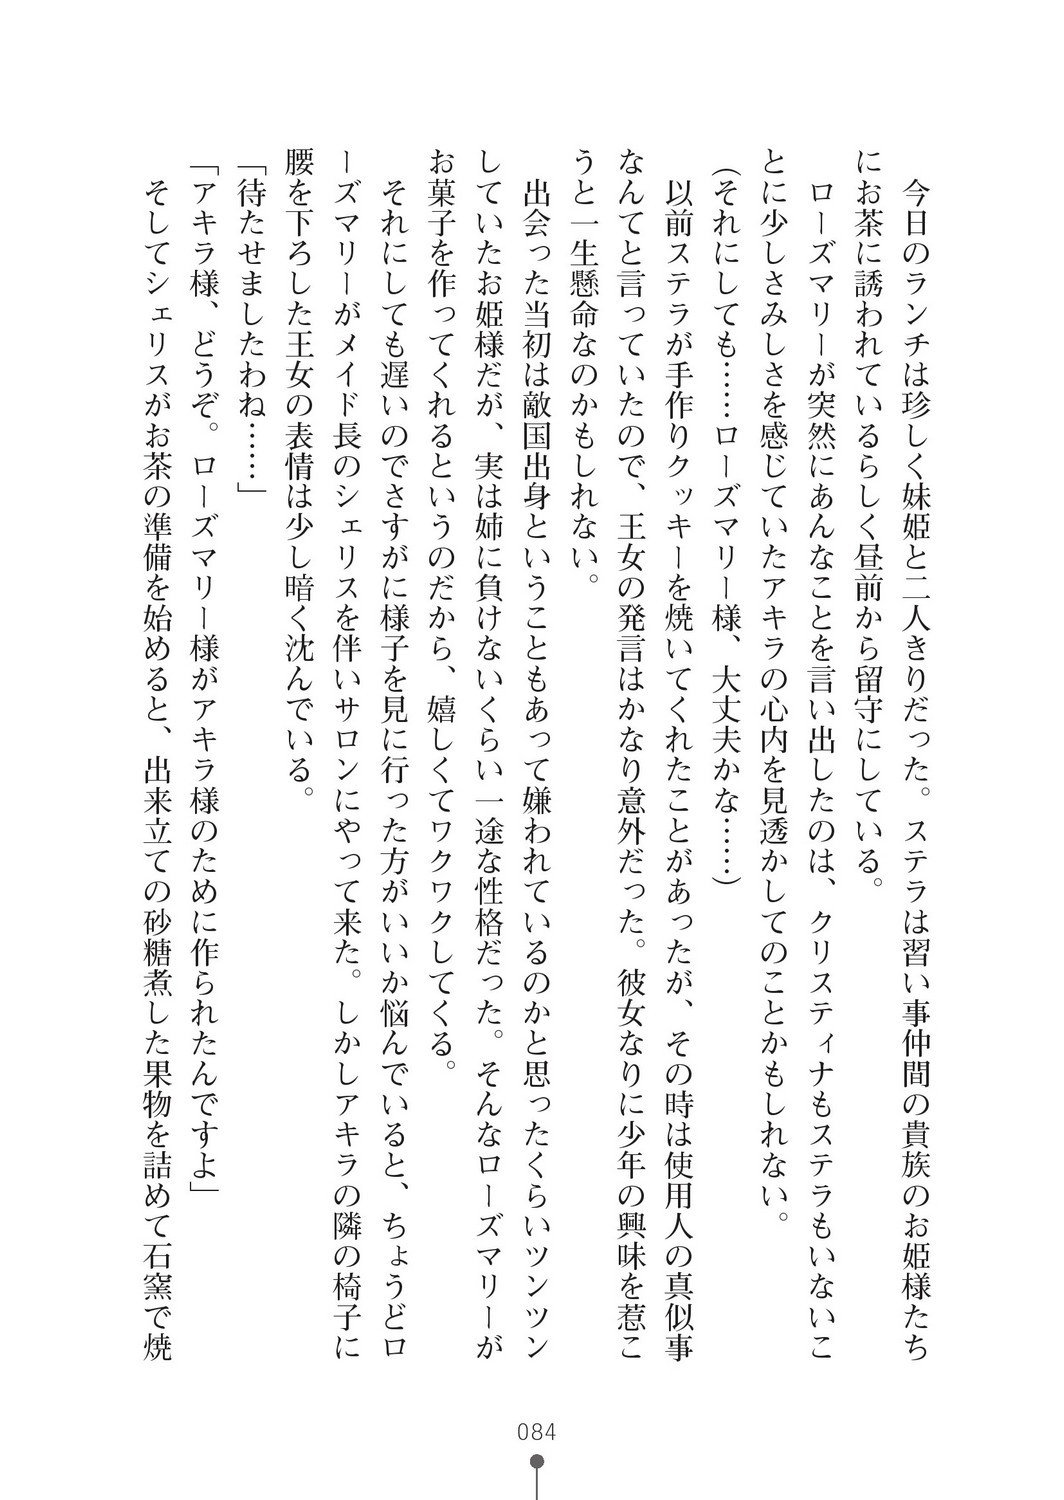 今日のランチは珍しく妹姫と二人きりだった。ステラは習い事仲間の貴族のお姫様たち
にお茶に誘われているらしく昼前から留守にしている。
ローズマリーが突然にあんなことを言い出したのは、クリスティナもステラもいないこ
とに少しさみしさを感じていたアキラの心内を見透かしてのことかもしれない。
(それにしても……ローズマリー様、大丈夫かな……)
以前ステラが手作りクッキーを焼いてくれたことがあったが、その時は使用人の真似事
なんてと言っていたので、王女の発言はかなり意外だった。彼女なりに少年の興味を惹こ
うと一生懸命なのかもしれない。
出会った当初は敵国出身ということもあって嫌われているのかと思ったくらいツンツン
していたお姫様だが、実は姉に負けないくらい一途な性格だった。そんなローズマリーが
お菓子を作ってくれるというのだから、嬉しくてワクワクしてくる。
それにしても遅いのでさすがに様子を見に行った方がいいか悩んでいると、ちょうどロ
ーズマリーがメイド長のシェリスを伴いサロンにやって来た。しかしアキラの隣の椅子に
腰を下ろした王女の表情は少し暗く沈んでいる。
「待たせましたわね……」
「アキラ様、どうぞ。ローズマリー様がアキラ様のために作られたんですよ」
そしてシェリスがお茶の準備を始めると、出来立ての砂糖煮した果物を詰めて石窯で焼
084